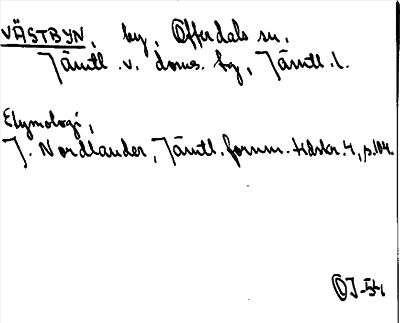 VÄSTBYN, by, Offerdals sn,
Jämtl. v. doms. fg, Jämtl. l.
Etymologi,
J. Nordlander, Jämtl. fornm. tidskr. 4, p. 104.